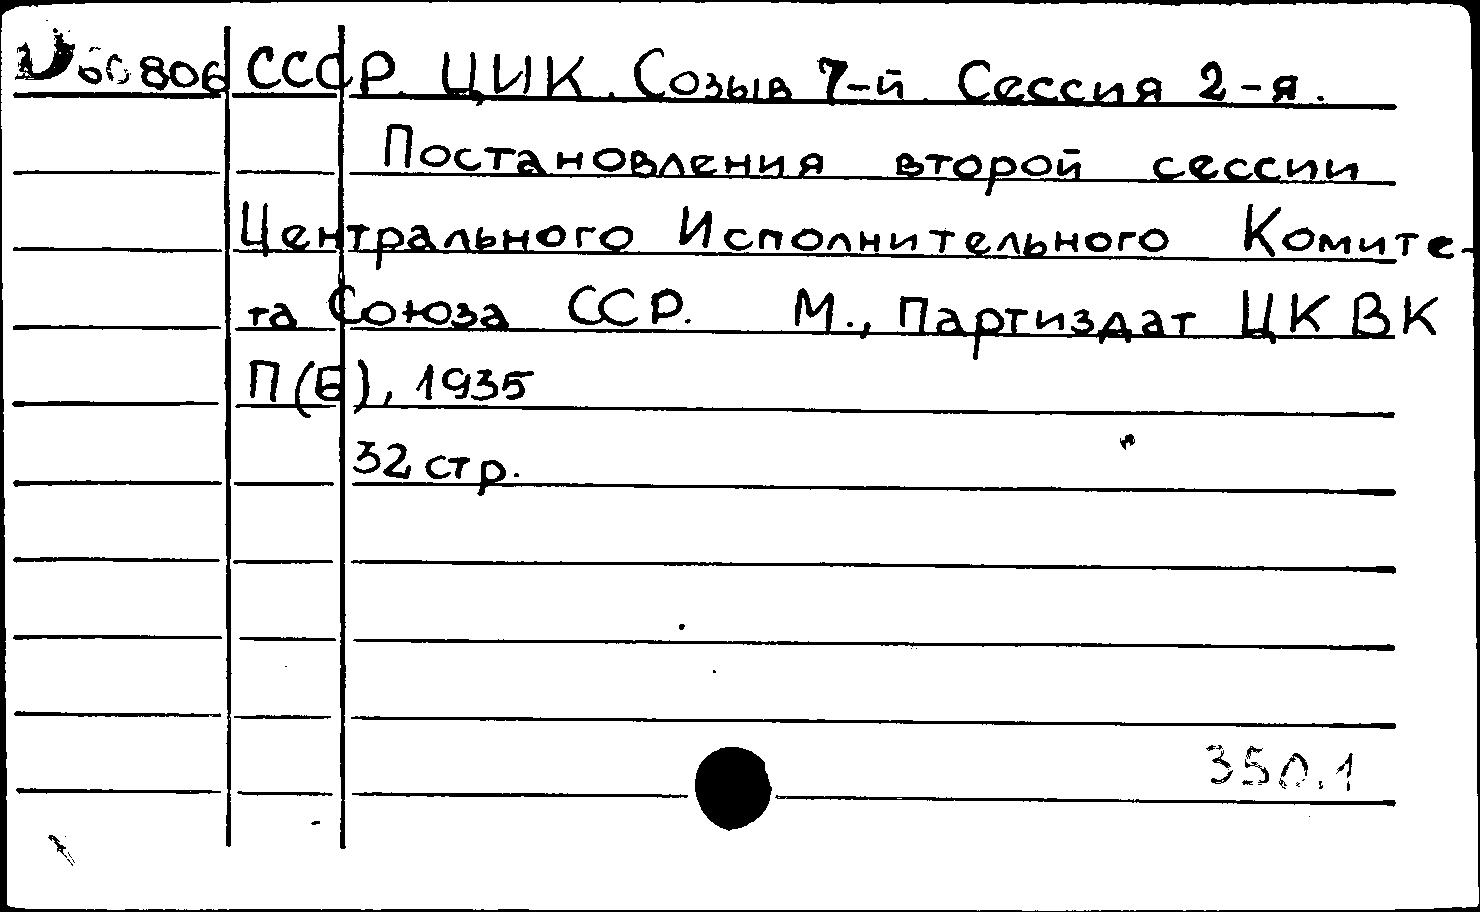 D60806 СССР. ЦИК. Созыв 7-й. Сессия 2-я.
Постановления второй сессии
Центрального Исполнительного Комите-
та Союза ССР. М., Партиздат ЦК ВК
П(Б), 1935
32 стр.
350.1